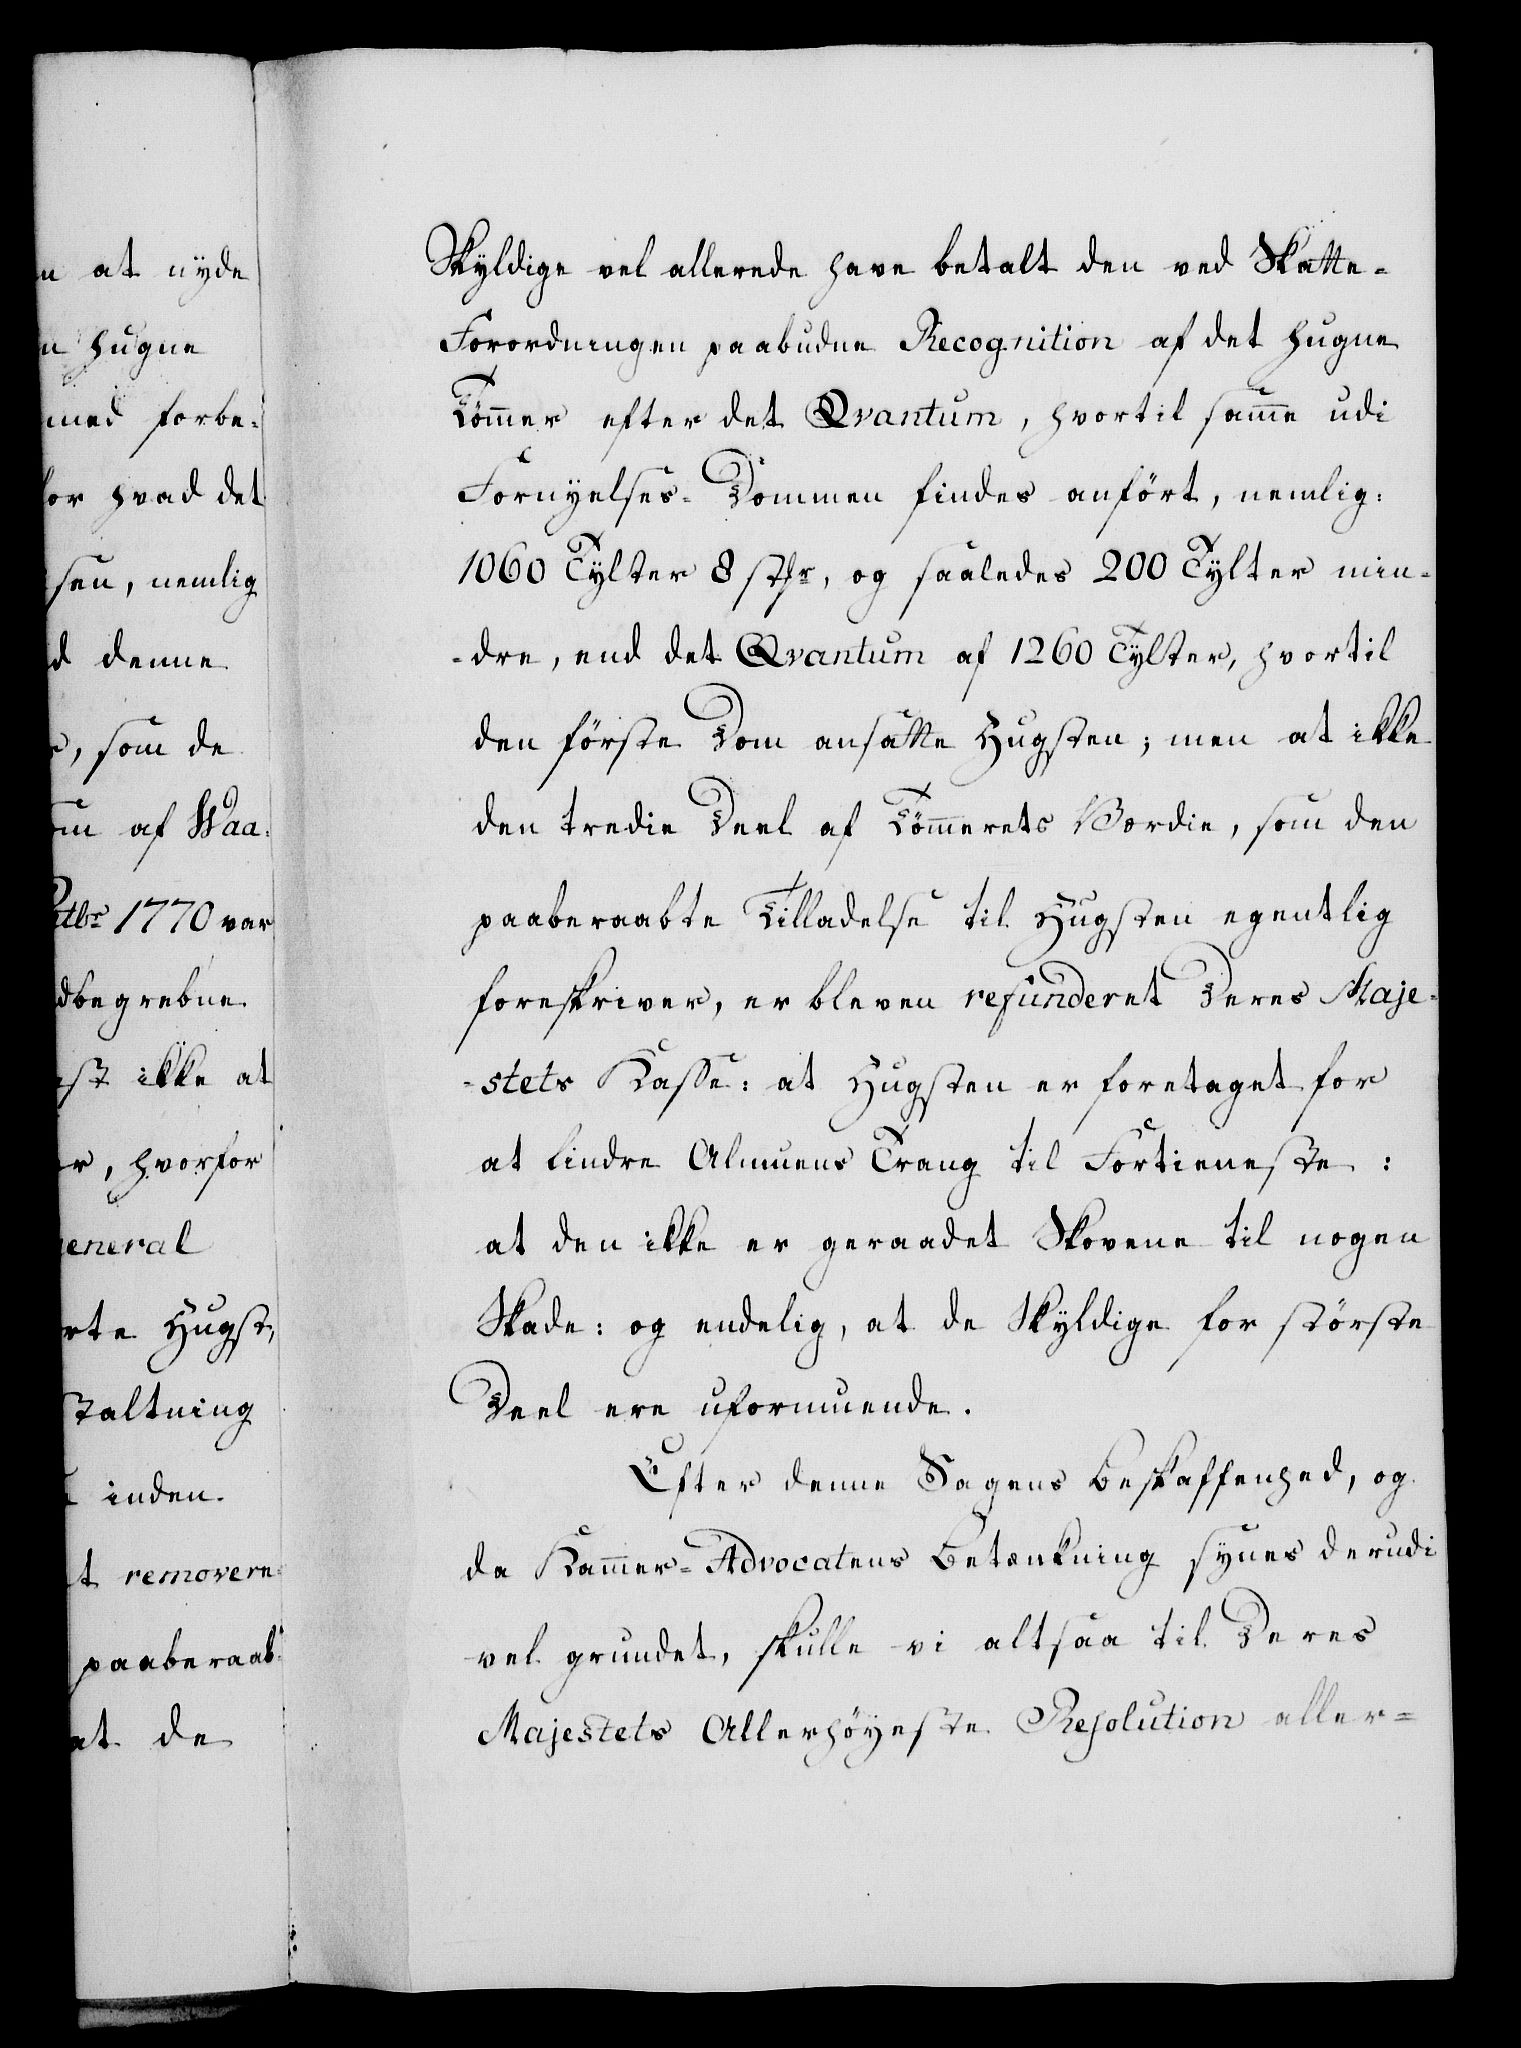 n at nyde
n hugne
med forbe-
for hvad det
sen, nemlig
d denne
r, som de
om af Waa-
ctbr 1770 var
dbegrebne
est ikke at
er, hvorfor
general
rte Hugst,
staltning
t inden
t removere
paaberaab-
at de
Skyldige vel allerede have betalt den ved Skatte-
Forordningen paabudne Recognition af det hugne
Tömmer efter det Qvantum, hvortil samme udi
Fornyelses-Dommen findes anfört, nemlig:
1060 Tylter 8 stkr, og saaledes 200 Tylter min-
-dre, end det Qvantum af 1260 Tylter, hvortil
den förste Dom ansatte Hugsten; men at ikke
den tredie Deel af Tömmerets Værdie, som den
paaberaabte Tilladelse til Hugsten egentlig
foreskriver, er bleven refunderet Deres Maje-
-stets Kasse: at Hugsten er foretaget for
at lindre Almuens Trang til Fortieneste:
at den ikke er geraadet Skovene til nogen
Skade: og endelig, at de Skyldige for störste
Deel ere uformuende.
Efter denne Sagens Beskaffenhed, og
da Kammer-Advocatens Betænkning synes derudi
vel grundet, skulle vi altsaa til Deres
Majestets Allerhöyeste Resolution aller-